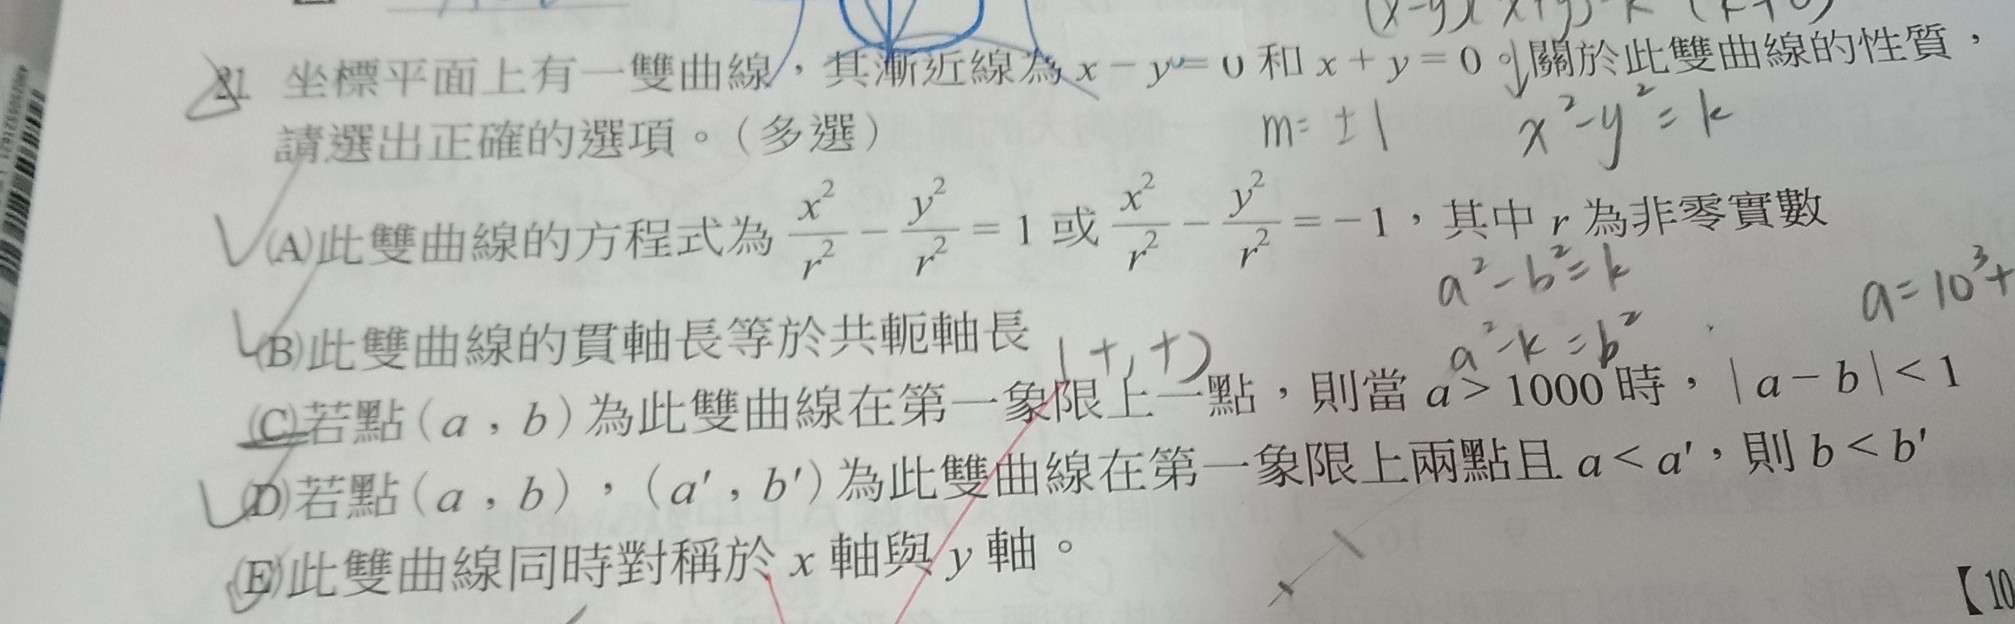 (x-y)(x+y)=k (k≠0)
21 坐標平面上有一雙曲線,其漸近線為 x − y = 0 和 x + y = 0。關於此雙曲線的性質,
m=±1 x²-y²=k
請選出正確的選項。(多選)
(A)此雙曲線的方程式為 x²/r² − y²/r² = 1 或 x²/r² − y²/r² = −1,其中 r 為非零實數
a²-b²=k
a=10³+
(B)此雙曲線的貫軸長等於共軛軸長
(+,+)
a²-k=b²
(C)若點(a,b)為此雙曲線在第一象限上一點,則當 a > 1000 時,|a − b| < 1
(D)若點(a,b),(a′,b′)為此雙曲線在第一象限上兩點且 a < a′,則 b < b′
(E)此雙曲線同時對稱於 x 軸與 y 軸。
【10